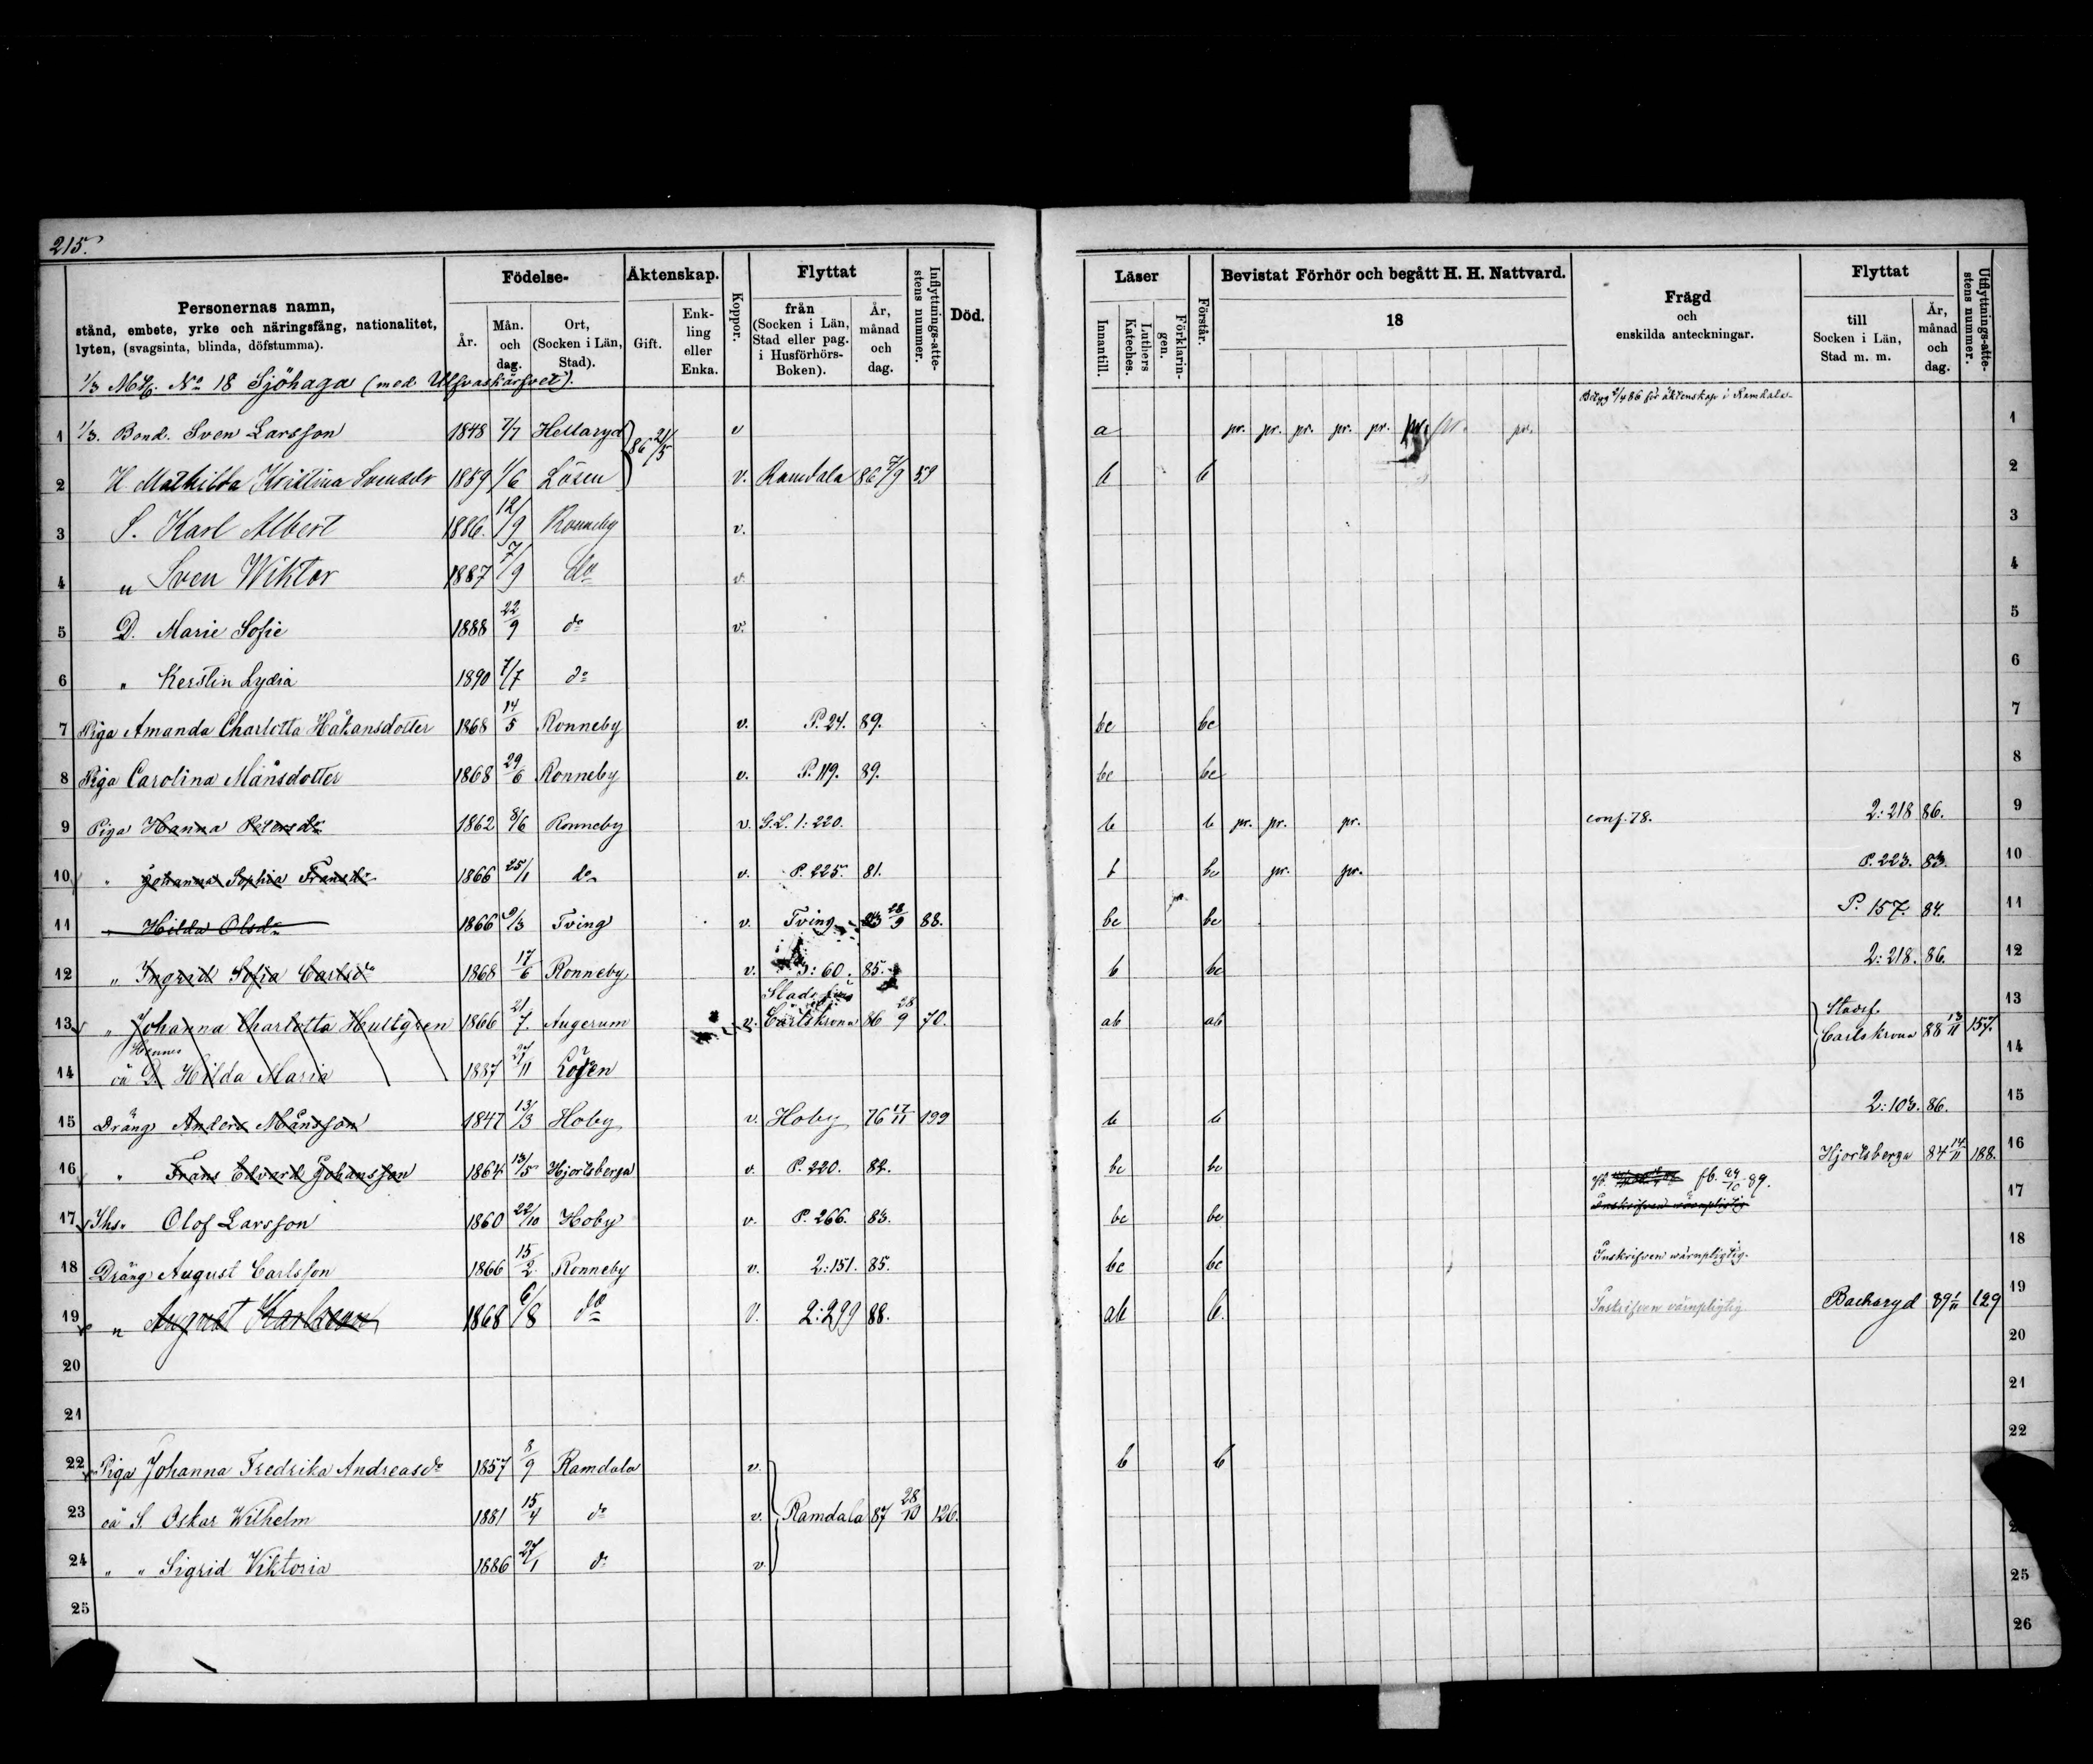 215.
Personernas namn,
stånd, embete, yrke och näringsfång, nationalitet,
lyten, (svagsinta, blinda, döfstumma).
Födelse-
År.
Mån. och dag.
Ort, (Socken i Län, Stad).
Äktenskap.
Gift.
Enk-ling eller Enka.
Koppor.
Flyttat
från (Socken i Län, Stad eller pag. i Husförhörs-Boken).
År, månad och dag.
Inflyttnings-atte-stens nummer.
Död.
Läser
Innantill.
Luthers Kateches.
Förklarin-gen.
Förstår.
Bevistat Förhör och begått H. H. Nattvard.
18
Frägd
och
enskilda anteckningar.
Flyttat
till Socken i Län, Stad m. m.
År, månad och dag.
Utflyttnings-atte-stens nummer.
1/3 Mtl. No 18 Sjöhaga (med Ulfvaskärfvet).
1 1/3. Bond. Sven Larsson 1848 7/7 Hellaryd 86 21/5 v a pr. pr. pr. pr. pr. pr. pr. 1
2 H Mathilda Kristina Svensdr 1859 1/6 Lösen v. Ramdala 86 7/9 59 b b 2
3 S. Karl Albert 1886. 12/9 Ronneby v. 3
4 " Sven Wiktor 1887 7/9 do v. 4
5 D. Marie Sofie 1888 22/9 do v. 5
6 " Kerstin Lydia 1890 7/7 do 6
7 Piga Amanda Charlotta Håkansdotter 1868 14/5 Ronneby v. P. 24. 89. bc bc 7
8 Piga Carolina Månsdotter 1868 29/6 Ronneby v. P. 119. 89. bc bc 8
9 Piga Hanna Petersdr 1862 8/6 Ronneby v. G.L. 1: 220. b b pr. pr. pr. conf. 78. 2: 218 86. 9
10 " Johanna Sophia Fransdr 1866 25/1 do v. P. 225. 81. b bc pr. pr. P. 223. 83. 10
11 " Hilda Olsdr 1866 9/3 Tving v. Tving 83 28/9 88. bc bc P. 157. 84. 11
12 " Ingrid Sofia Carlsdr 1868 17/6 Ronneby v. 3: 60. 85. b bc 2: 218. 86. 12
13 " Johanna Charlotta Hultgren 1866 21/7. Augerum v. Stadsförs Carlskrona 86 28/9 70. ab ab Stadsf. Carlskrona 88 13/11 157. 13
14 Hennes oä D. Hilda Maria 1887 27/11 Lösen 14
15 Dräng Anders Månsson 1847 13/3 Hoby v. Hoby 76 17/11 199 b b 2: 103. 86. 15
16 " Frans Edvard Johansson 1864 13/5 Hjortsberga v. P. 220. 82. bc bc Hjortsberga 84 14/11 188. 16
fb. 29/10 89.
17 Ihs. Olof Larsson 1860 22/10 Hoby v. P. 266. 83. bc bc Inskrifven wärnpligtig 17
18 Dräng August Carlsson 1866 15/2. Ronneby v. 2: 151. 85. bc bc Inskrifven wärnpligtig. 18
19 " August Karlsson 1868 6/8 do v. 2: 299 88. ab b. Inskrifven värnpligtig Backaryd 89 1/11 129 19
20 20
21 21
22 Piga Johanna Fredrika Andreasdr 1857 8/9 Ramdala v. b b 22
23 oä S. Oskar Wilhelm 1881 15/4 do v. Ramdala 87 28/10 126.
24 " " Sigrid Viktoria 1886 27/1 do v.
25 25
26